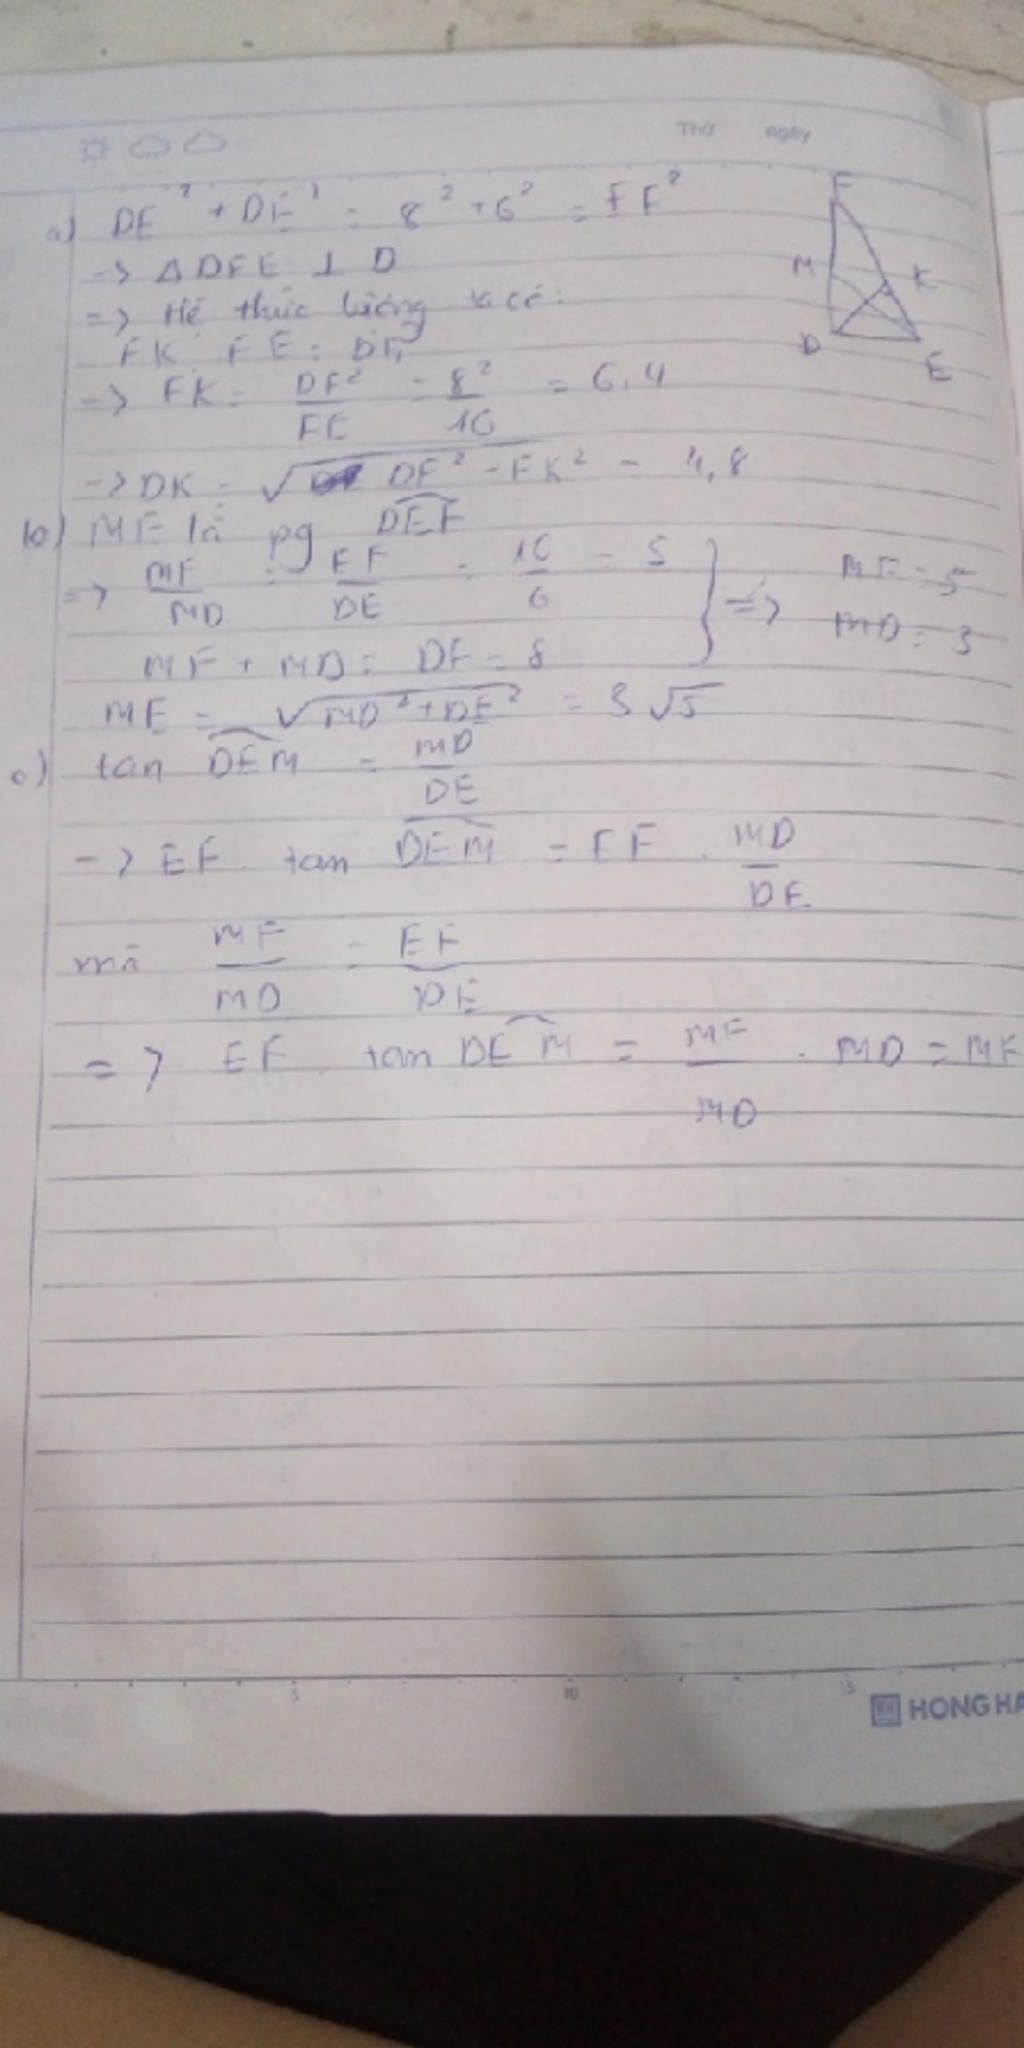 Thứ ngày
a) DE² + DE² = 8² + 6² = EF²
-> Δ DFE ⊥ D
=> Hệ thức lượng ta có:
FK . FE = DF²
-> FK = DF²/FE = 8²/10 = 6,4
-> DK = √(DF² - FK²) = 4,8
b) ME là pg DEF
=> MF/MD = EF/DE = 10/6 = 5
MF + MD = DF = 8
} => MF = 5
MD = 3
ME = √(MD² + DE²) = 3√5
c) tan DEM = MD/DE
-> EF . tan DEM = EF . MD/DE
mà MF/MD = EF/DE
=> EF . tan DEM = MF/MD . MD = MF
F
M K
D E
5 10 15
HONG HA